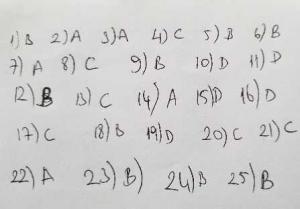 1) B 2) A 3) A 4) C 5) B 6) B
7) A 8) C 9) B 10) D 11) D
12) B 13) C 14) A 15) D 16) D
17) C 18) B 19) D 20) C 21) C
22) A 23) B) 24) B 25) B